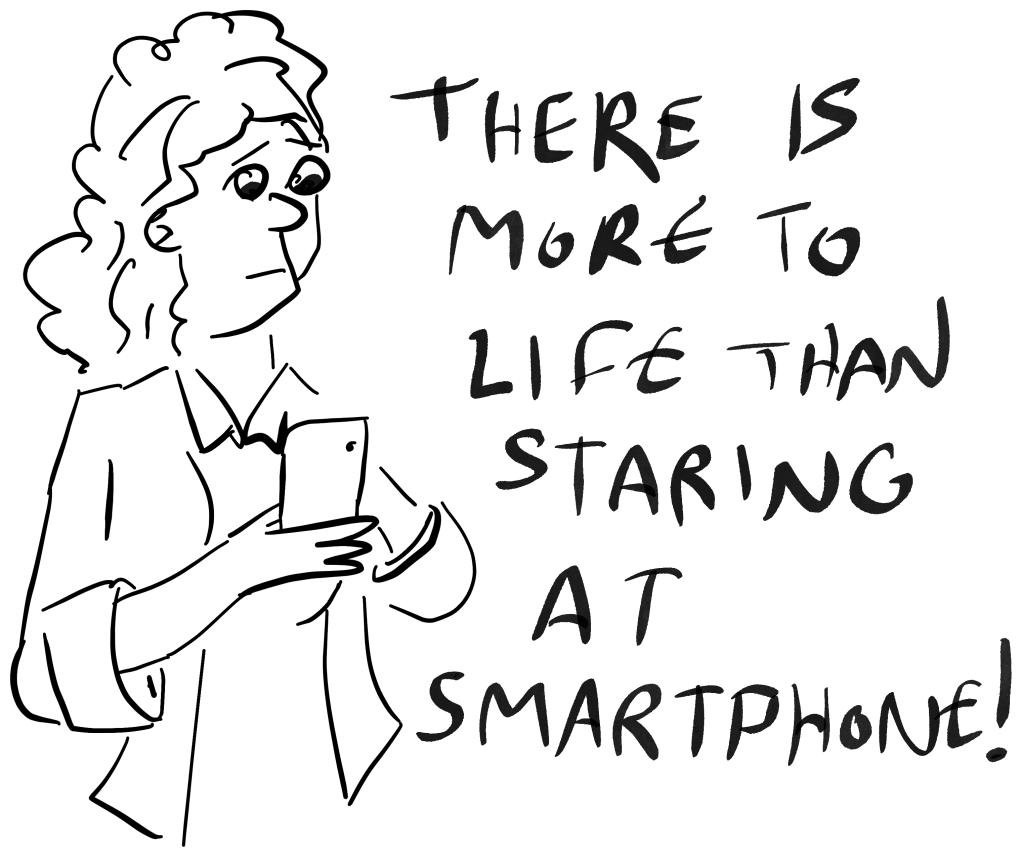 THERE IS
MORE TO
LIFE THAN
STARING
AT
SMARTPHONE!